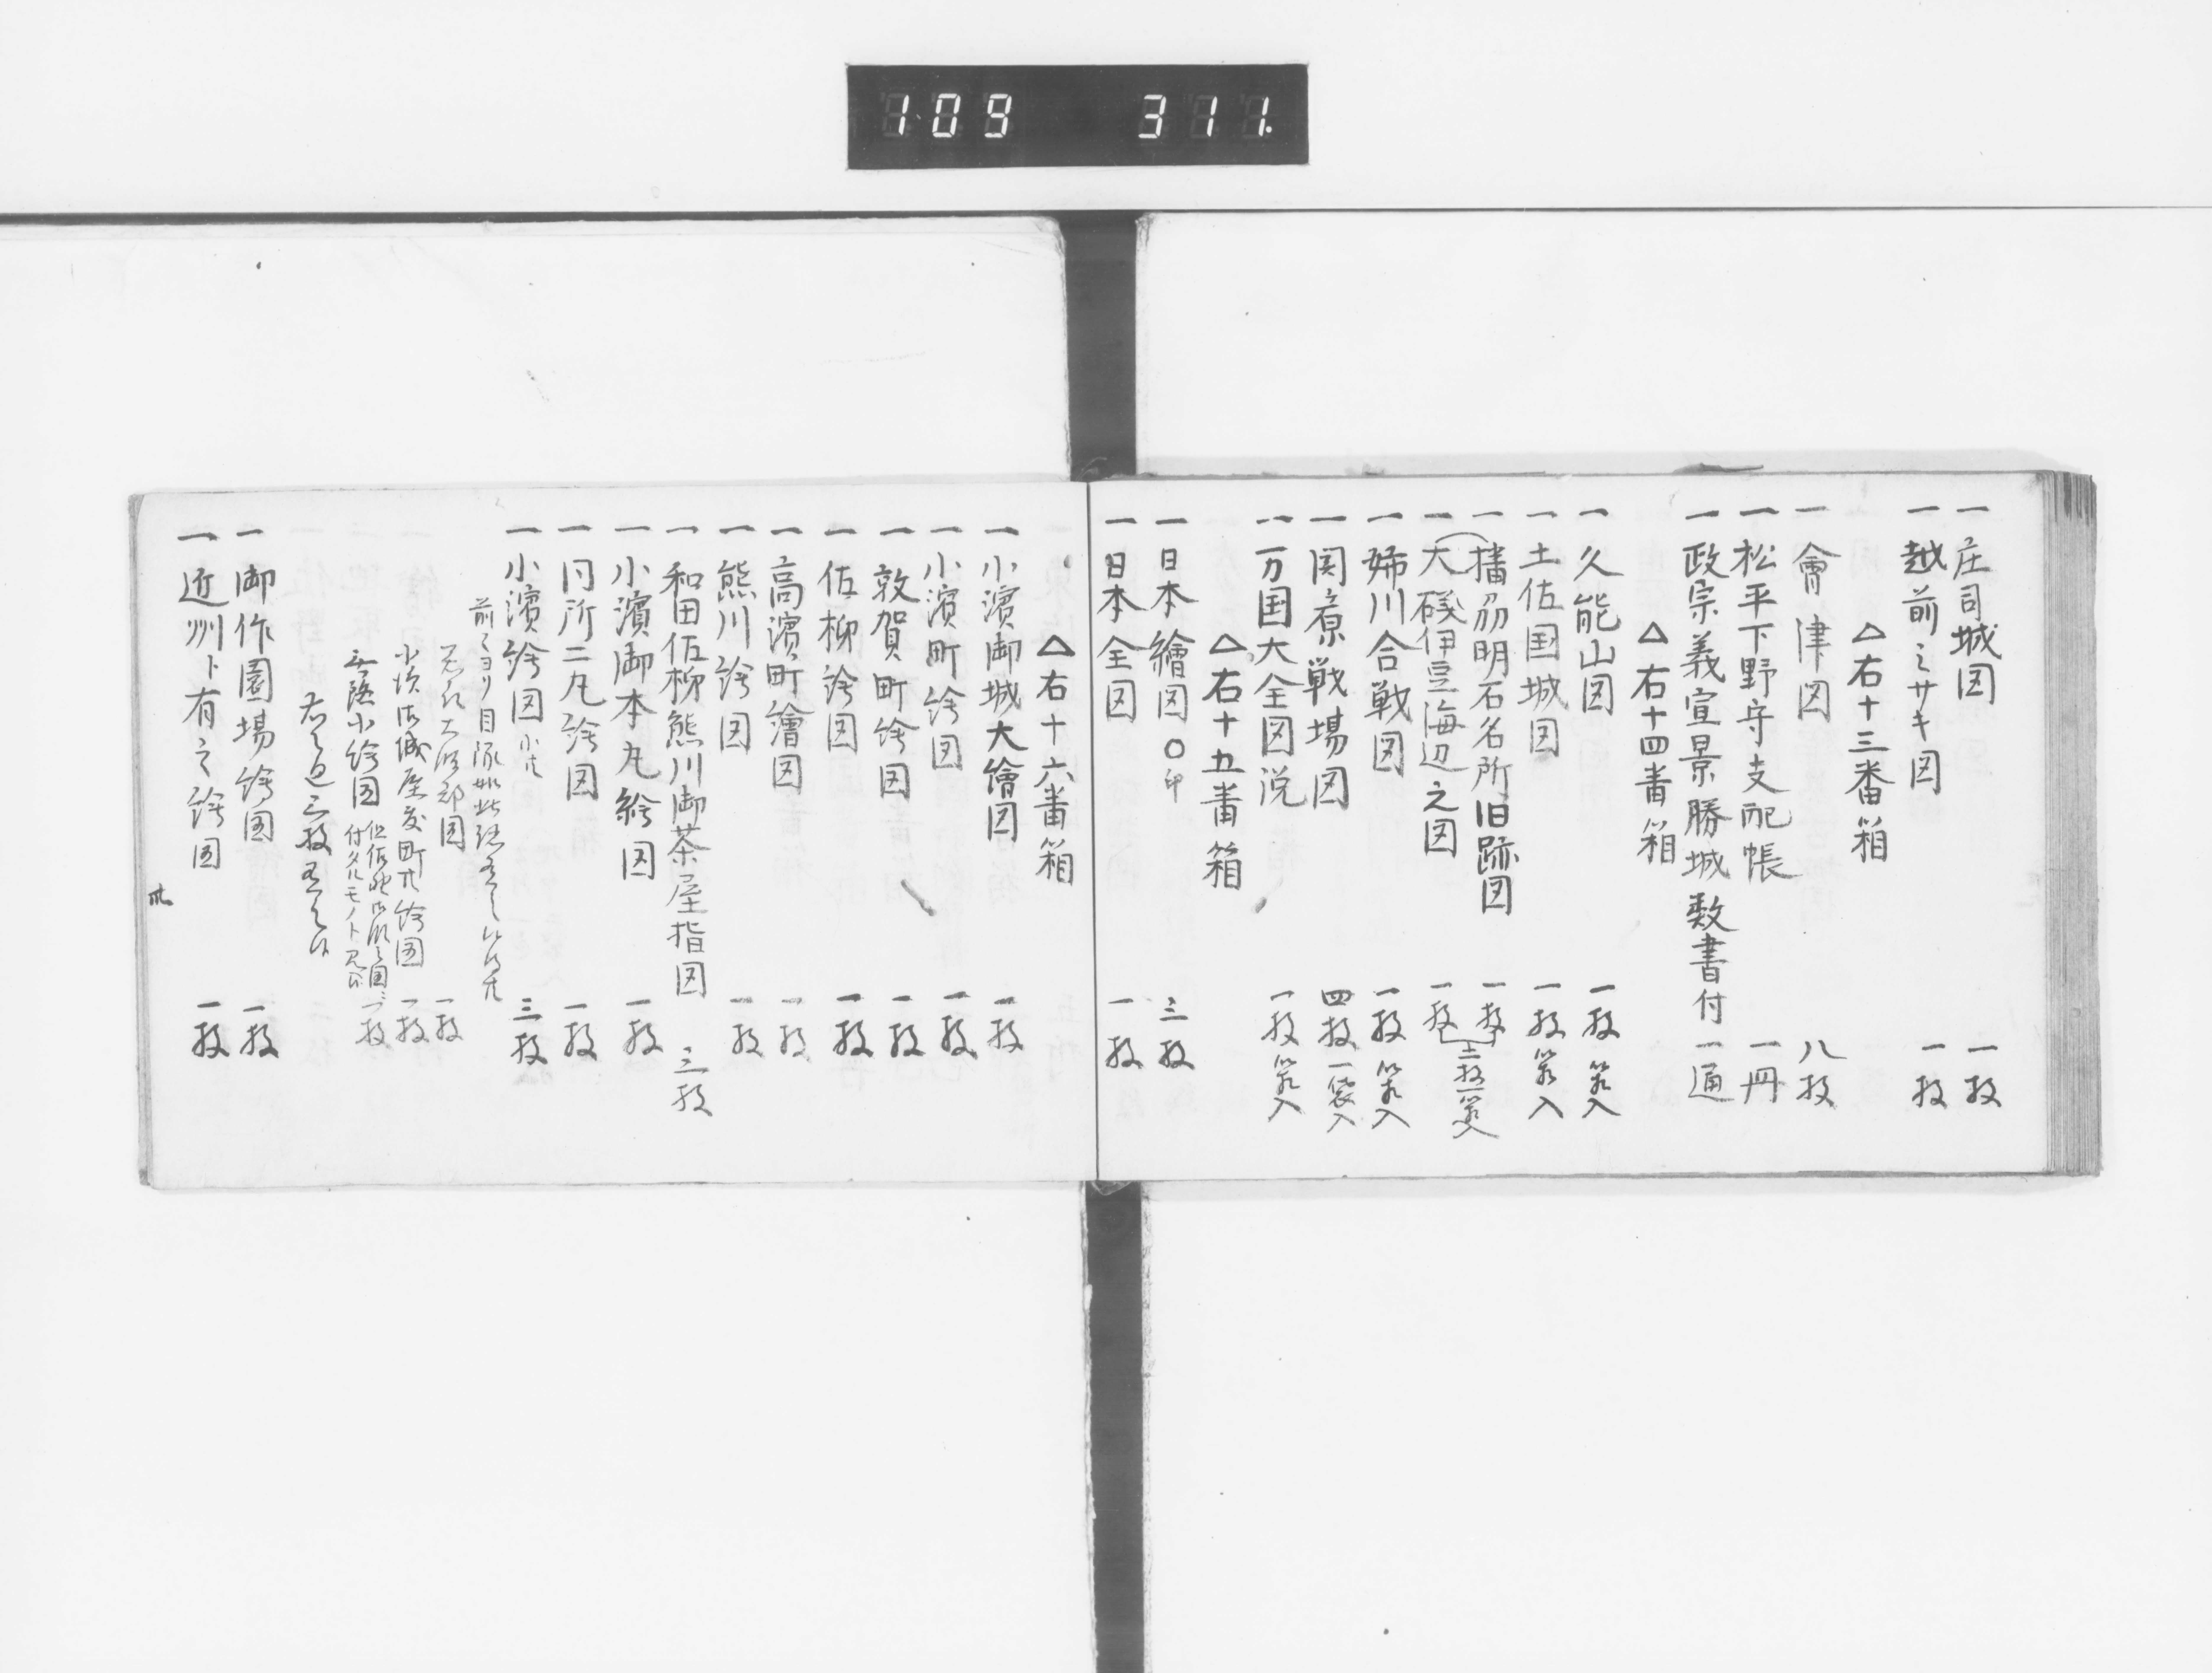 109 311.
一庄司城図 一枚
一越前ミサキ図 一枚
△右十三番箱
一會津図 八枚
一松平下野守支配帳 一冊
一政宗義宣景勝城数書付 一通
△右十四番箱
一久能山図 一枚 箱入
一土佐国城図 一枚 箱入
一播州明石名所旧跡図 一枚
一大磯伊豆海辺之図 一枚
二枚一箱入
一姉川合戦図 一枚 箱入
一関ヶ原戦場図 四枚 一袋入
一万国大全図説 一枚 箱入
△右十五番箱
一日本繪図〇印 三枚
一日本全図 一枚
△右十六番箱
一小濱御城大繪図 一枚
一小濱町絵図 一枚
一敦賀町絵図 一枚
一佐柳絵図 一枚
一高濱町繪図 一枚
一熊川絵図 一枚
一和田佐柳熊川御茶屋指図 三枚
一小濱御本丸絵図 一枚
一同所二丸絵図 一枚
一小濱絵図 三枚
前々ヨリ目録如此
図 一枚
小濱御城屋敷町共絵図 一枚
小絵図 一枚
付タルモノト
三枚
一御作園場絵図 一枚
一近州ト有之絵図 一枚